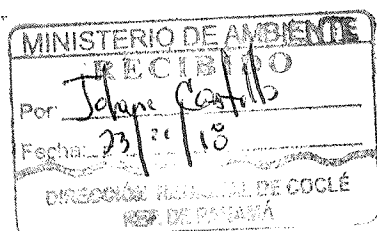 MINISTERIO DE AMBIENTE
RECIBIDO
Por: Castillo
Fecha: 23
DIRECCIÓN REGIONAL DE COCLÉ
REP. DE PANAMÁ